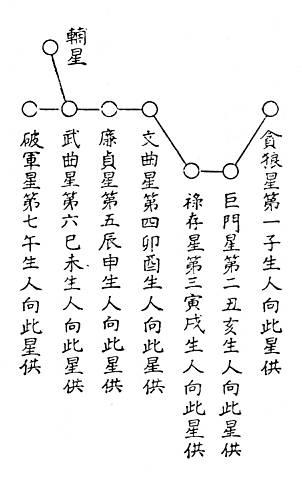 貪狼星第一子生人向此星供
巨門星第二丑亥生人向此星供
祿存星第三寅戌生人向此星供
文曲星第四卯酉生人向此星供
廉貞星第五辰申生人向此星供
武曲星第六巳未生人向此星供
輔星
破軍星第七午生人向此星供